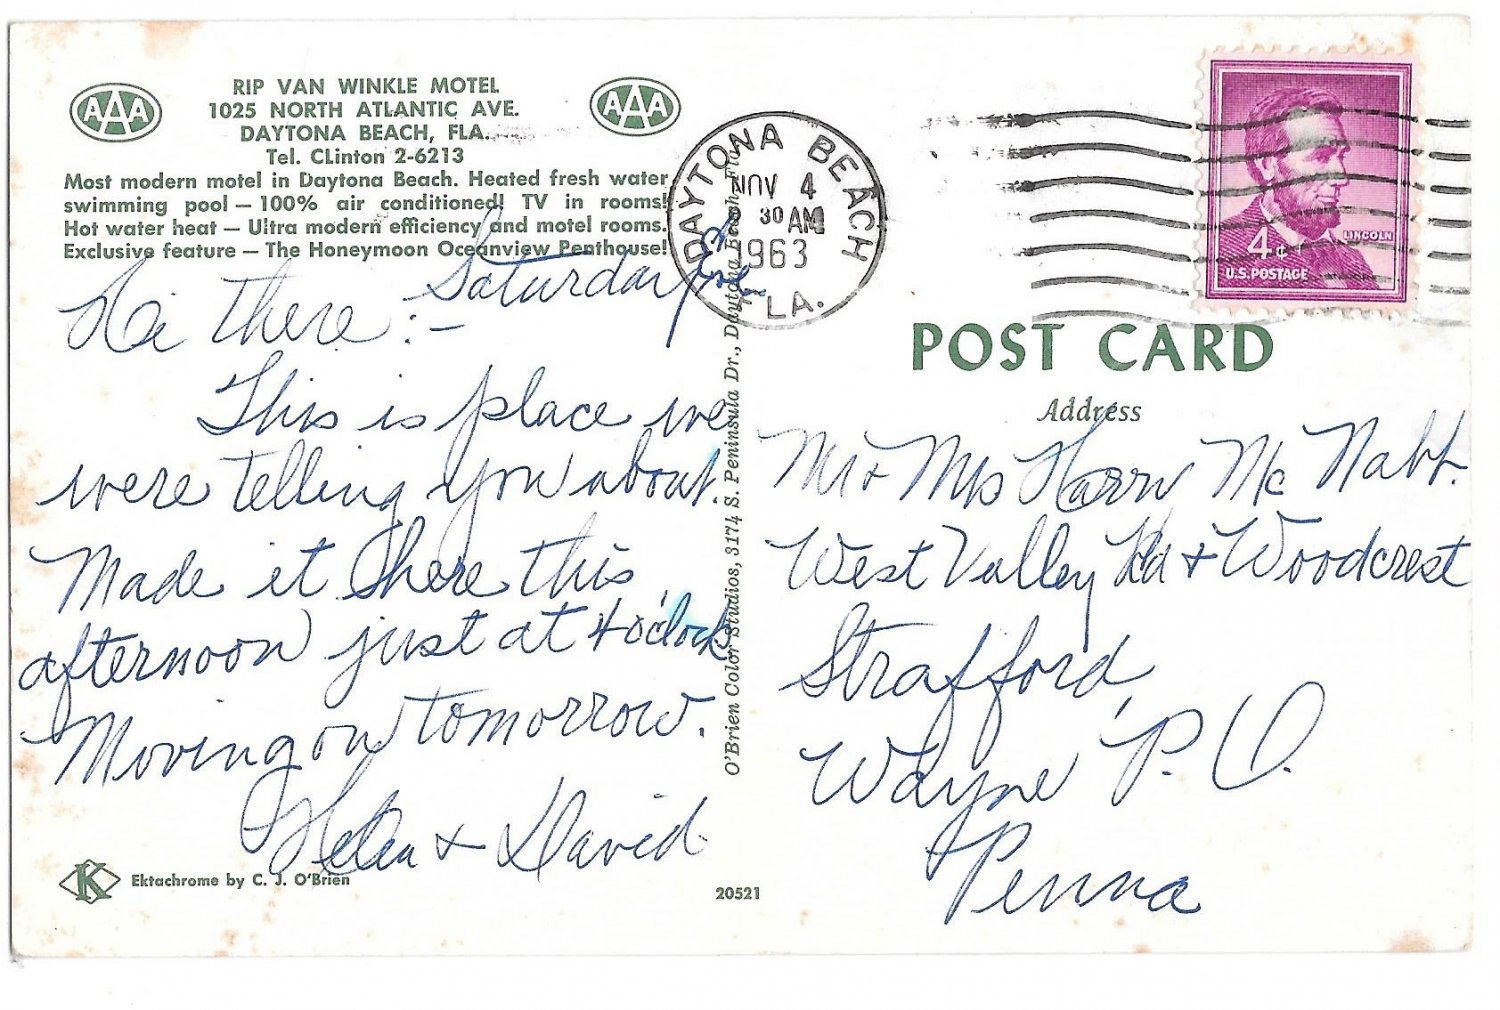 AAA
RIP VAN WINKLE MOTEL
1025 NORTH ATLANTIC AVE.
DAYTONA BEACH, FLA.
Tel. CLinton 2-6213
AAA
Most modern motel in Daytona Beach. Heated fresh water
swimming pool — 100% air conditioned! TV in rooms!
Hot water heat — Ultra modern efficiency and motel rooms.
Exclusive feature — The Honeymoon Oceanview Penthouse!
Saturday
Hi There :-
This is place we
were telling you about.
Made it there this
afternoon just at 4 o'clock
Moving on tomorrow.
Helen + David
K
Ektachrome by C. J. O'Brien
20521
O'Brien Color Studios, 3174 S. Peninsula Dr., Daytona Beach, Fla.
DAYTONA BEACH
NOV 4
30 AM
1963
FLA.
LINCOLN
4¢
U.S. POSTAGE
POST CARD
Address
Mr + Mrs Harry Mc Nabb.
West Valley Rd + Woodcrest
Strafford,
Wayne P. O.
Penna